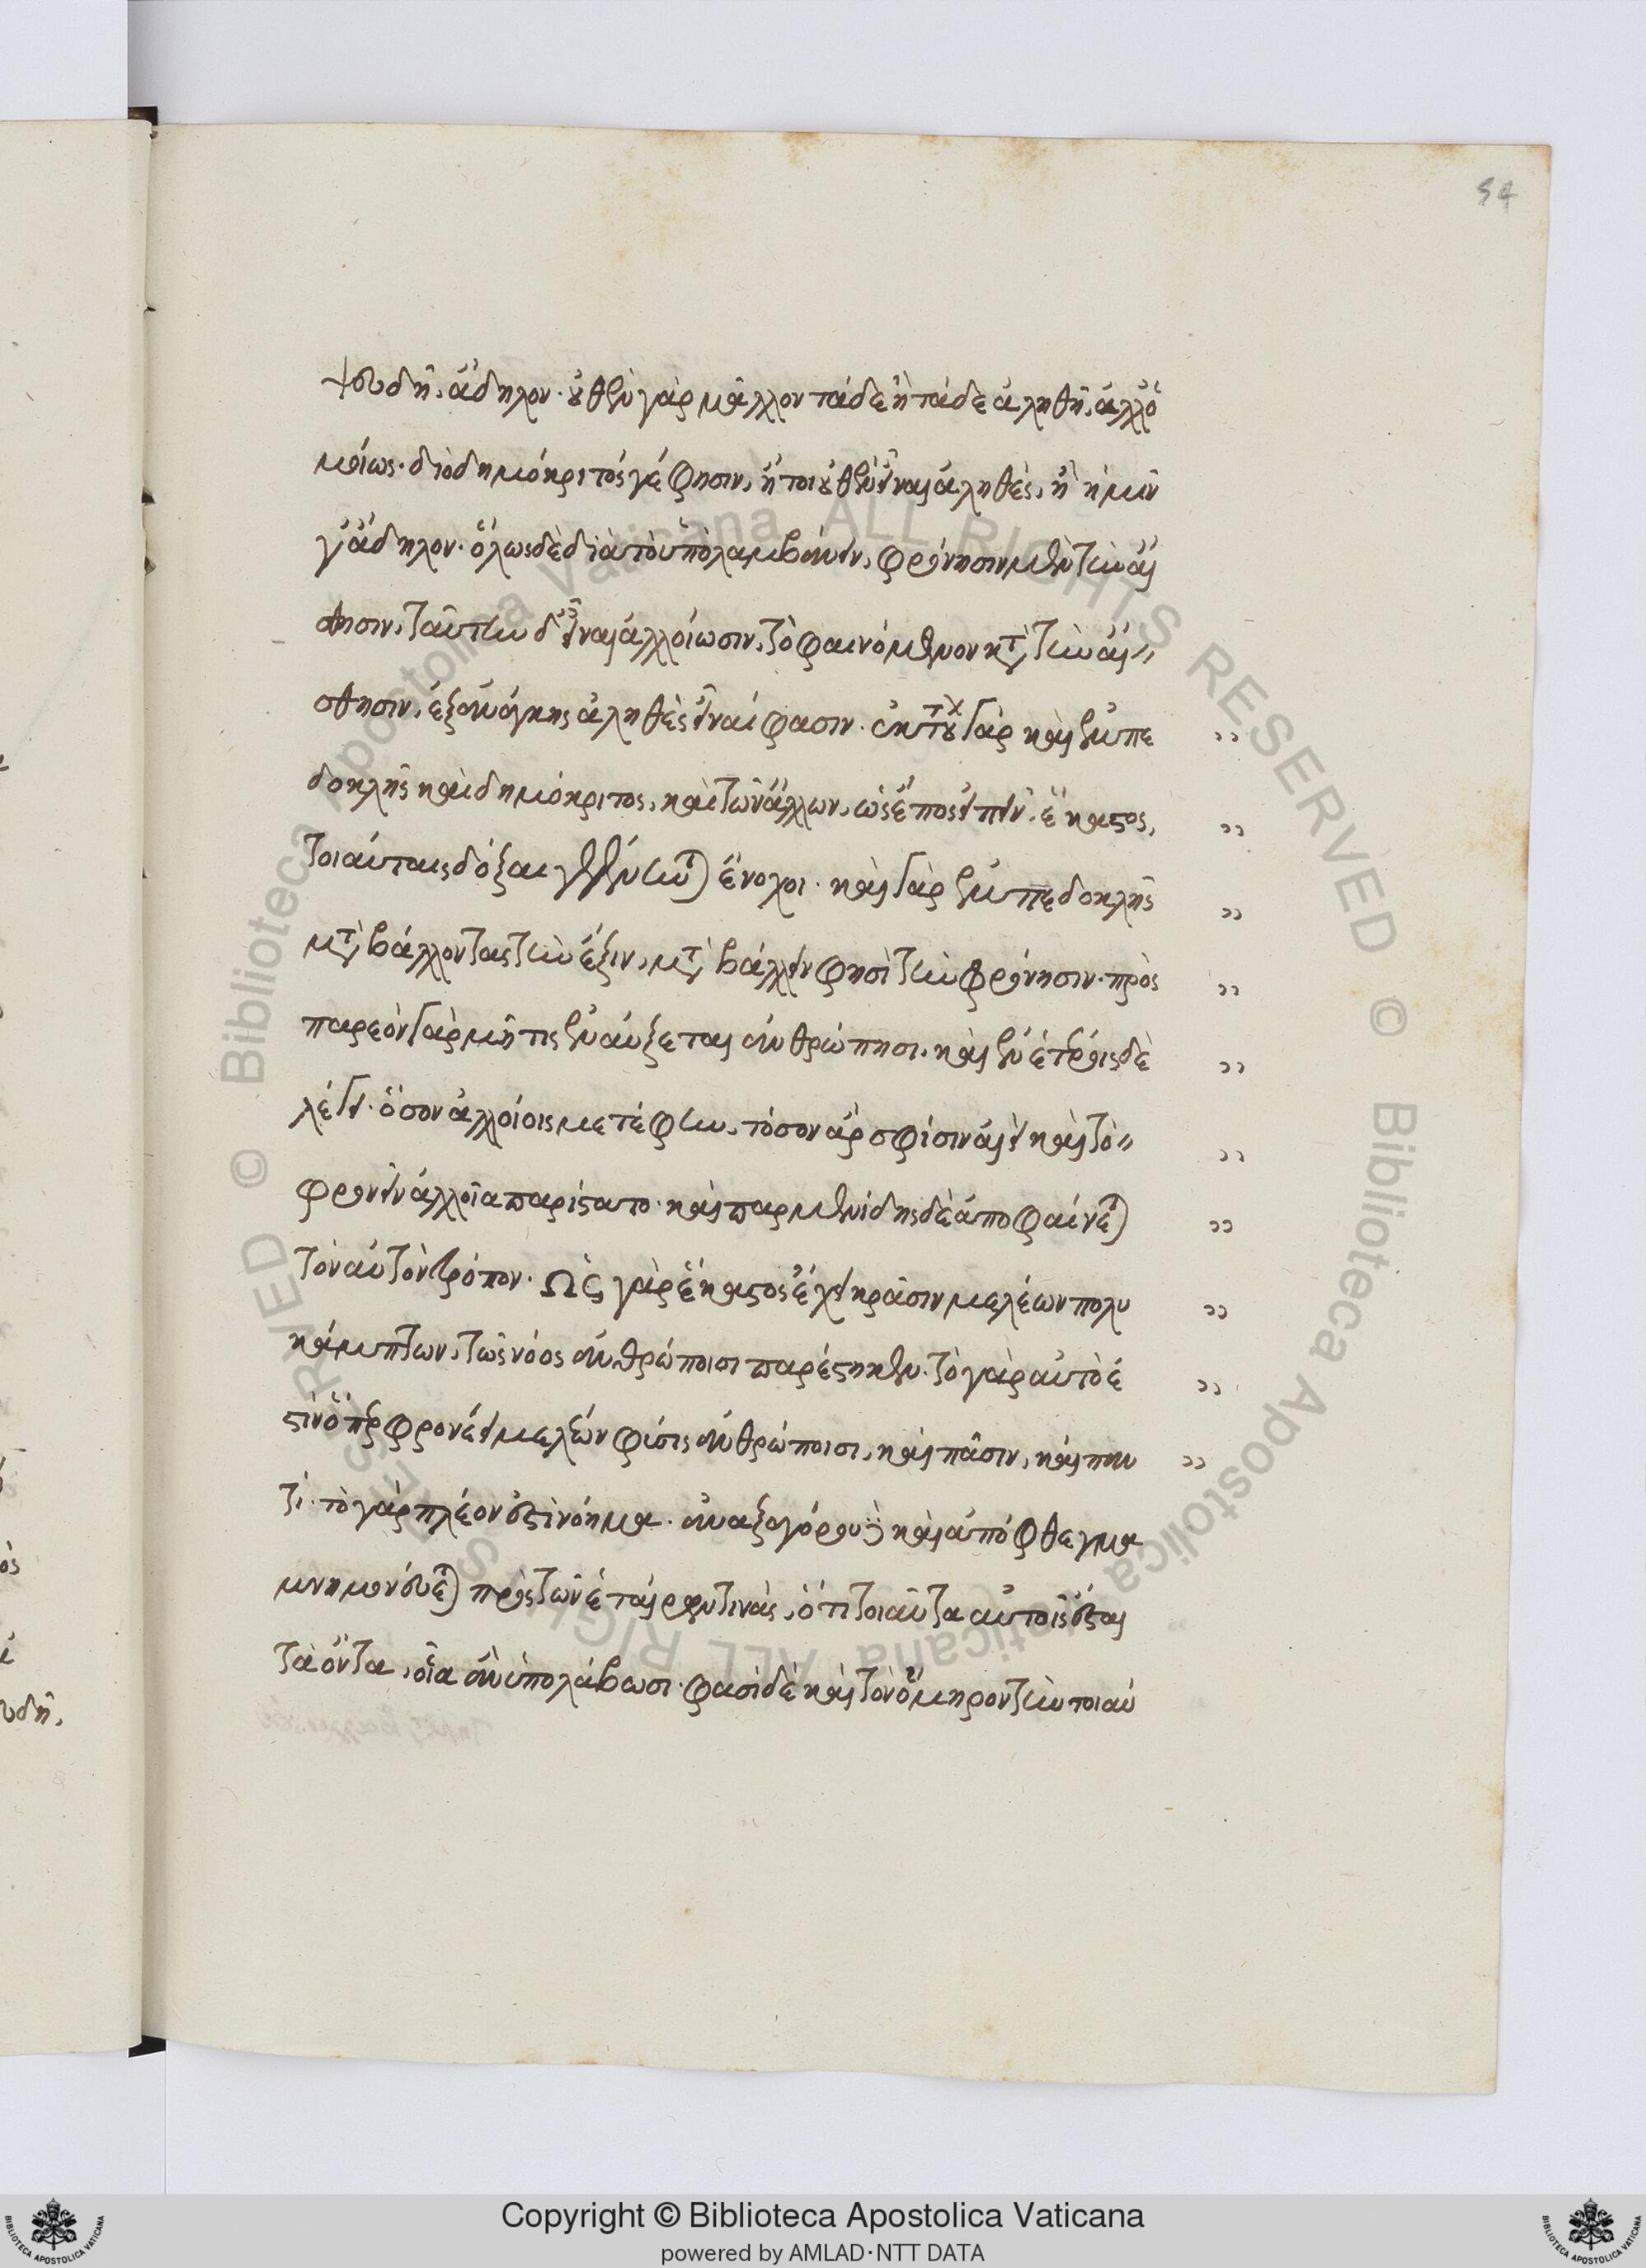 54
ψευδῆ, ἄδηλον· οὐθὲν γὰρ μᾶλλον τάδε ἢ τάδε ἀληθῆ, ἀλλ' ὁ
μοίως· διὸ δημόκριτός γέ φησιν, ἤτοι οὐθὲν εἶναι ἀληθὲς, ἢ ἡμῖν
γ' ἄδηλον· ὅλως δὲ διὰ τὸ ὑπολαμβάνειν, φρόνησιν μὲν τὴν αἴ
σθησιν, ταύτην δ' εἶναι ἀλλοίωσιν, τὸ φαινόμενον κατὰ τὴν αἴ
σθησιν, ἐξ ἀνάγκης ἀληθὲς εἶναί φασιν· ἐκ τούτων γὰρ καὶ ἐμπε
δοκλῆς καὶ δημόκριτος, καὶ τῶν ἄλλων, ὡς ἔπος εἰπεῖν, ἕκαστος,
τοιαύταις δόξαι γεγένηνται ἔνοχοι· καὶ γὰρ ἐμπεδοκλῆς
μεταβάλλοντας τὴν ἕξιν, μεταβάλλειν φησὶ τὴν φρόνησιν· πρὸς
παρεὸν γὰρ μῆτις ἐναύξεται ἀνθρώπησι, καὶ ἐν ἑτέροις δὲ
λέγει· ὅσον ἀλλοίοις μετέφην, τόσον ἄρ σφίσιν αἰεὶ καὶ τὸ
φρονεῖν ἀλλοῖα παρίστατο· καὶ παρμενίδης δὲ ἀποφαίνεται
τὸν αὐτὸν τρόπον· Ὡς γὰρ ἕκαστος ἔχει κρᾶσιν μελέων πολυ
κάμπτων, τὼς νόος ἀνθρώποισι παρέστηκεν· τὸ γὰρ αὐτὸ ἐ
στὶν ὅπερ φρονέει μελέων φύσις ἀνθρώποισι, καὶ πᾶσιν, καὶ παν
τί· τὸ γὰρ πλέον ἐστὶ νόημα· ἀναξαγόρου δὲ καὶ ἀπόφθεγμα
μνημονεύεται πρὸς τῶν ἑταίρων τινὰς, ὅτι τοιαῦτα αὐτοῖς ἔσται
τὰ ὄντα, οἷα ἂν ὑπολάβωσι· φασὶ δὲ καὶ τὸν ὅμηρον τὴν τοιαύ